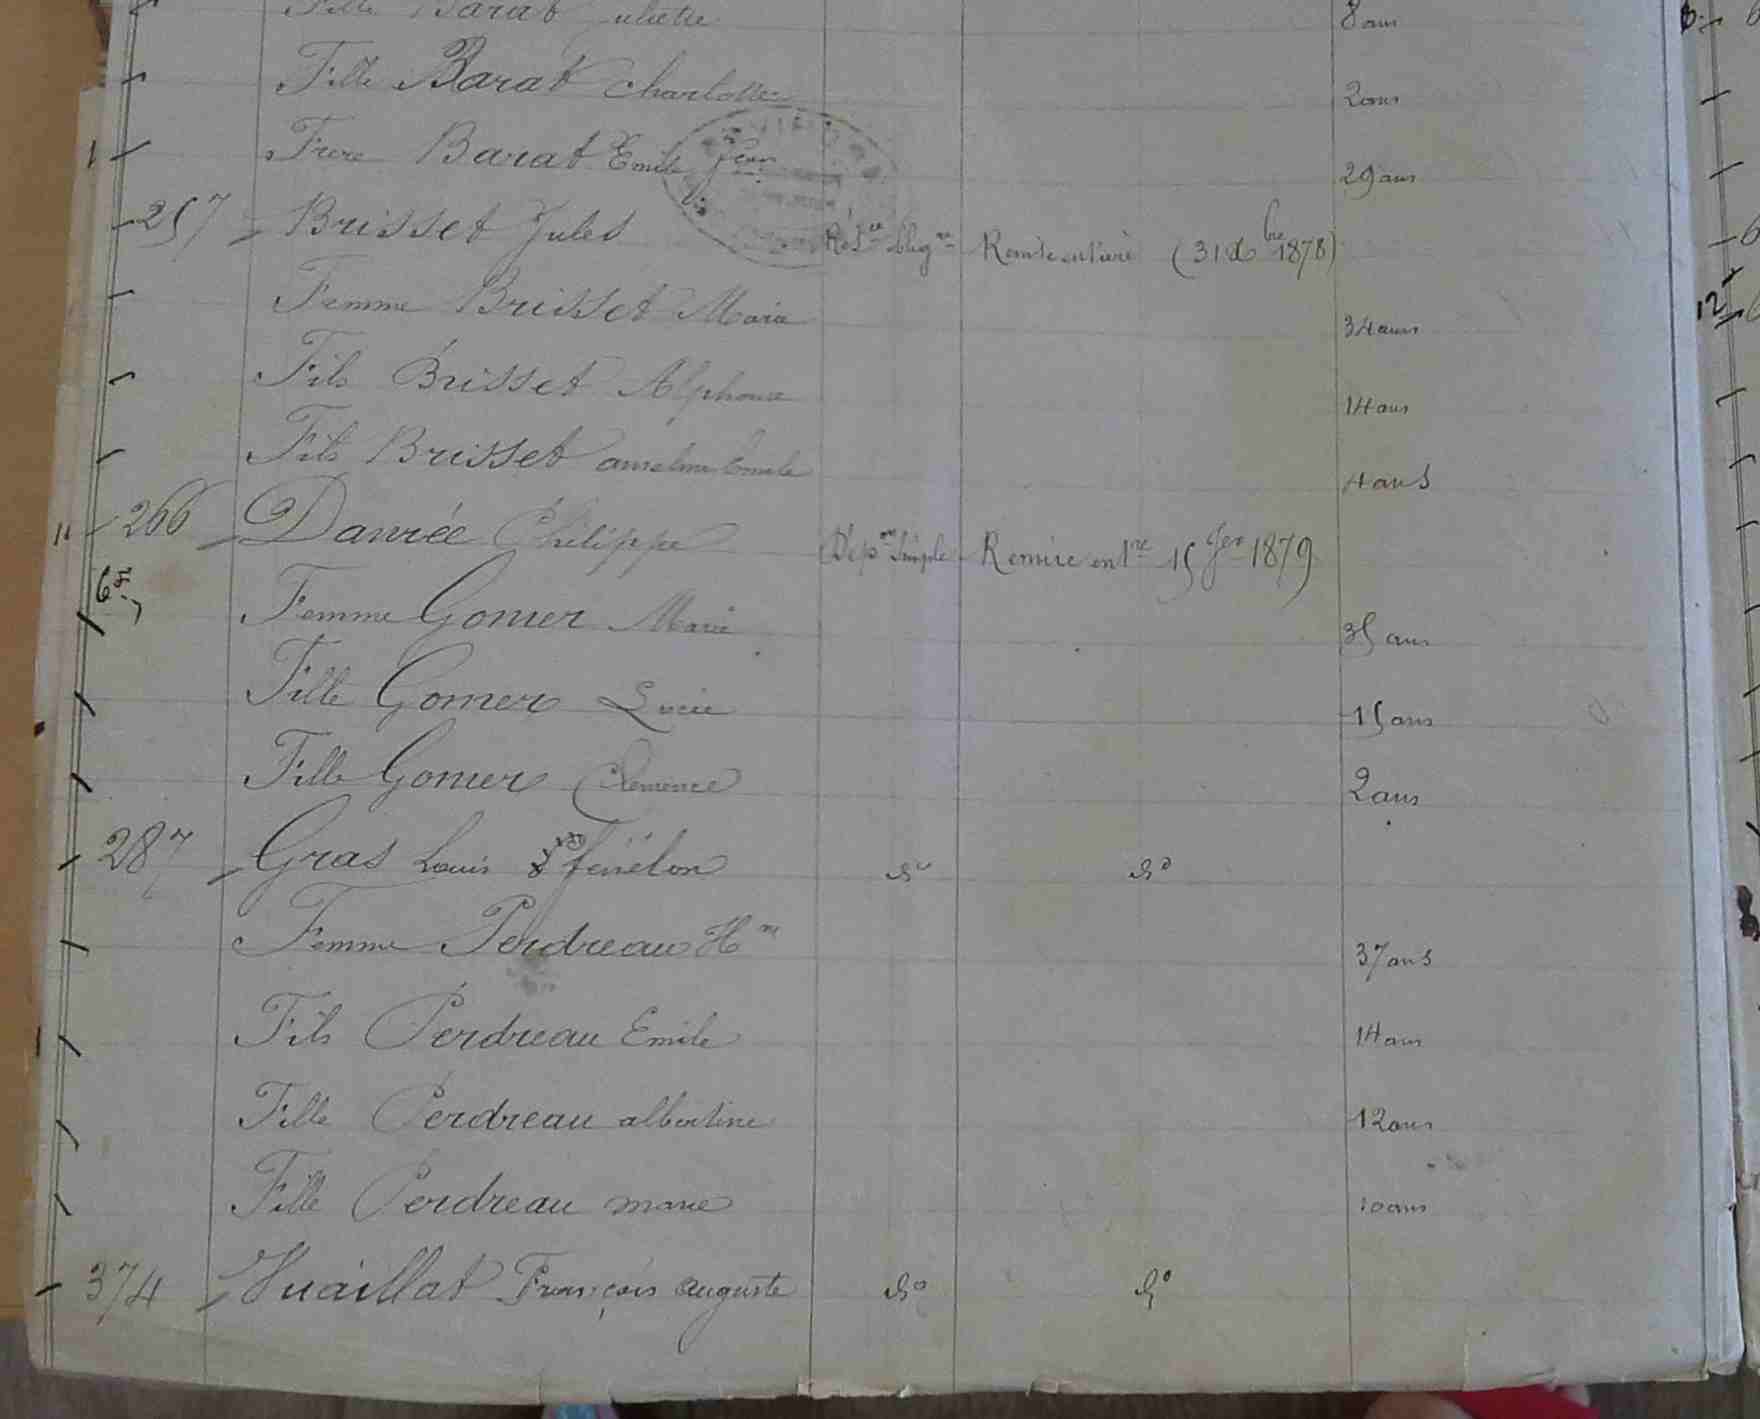 Fille Barat Juliette 8 ans
Fille Barat Charlotte 2 ans
Frere Barat Emile Jean 29 ans
257 Brisset Jules Remise entière (31 Xbre 1878)
Femme Brisset Marie 34 ans
Fils Brisset Alphonse 14 ans
Fils Brisset anselme Emile 4 ans
266 Danrée Philippe Dép.on Simple Remise entre 15 Jer 1879
Femme Gomer Marie 35 ans
Fille Gomer Lucie 15 ans
Fille Gomer Clemence 2 ans
287 Gras Louis fénélon do do
Femme Perdreau Hm 37 ans
Fils Perdreau Emile 14 ans
Fille Perdreau albertine 12 ans
Fille Perdreau marie 10 ans
374 Vuaillat François auguste do do